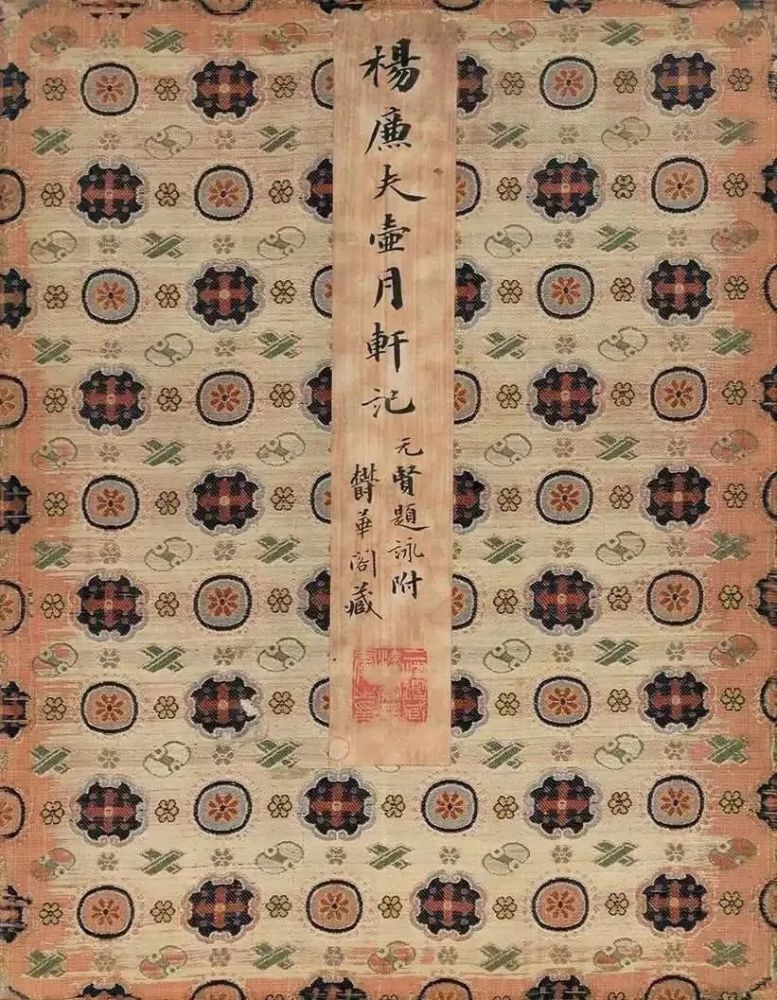 楊廉夫壺月軒記
元賢題詠附
欝華閣藏